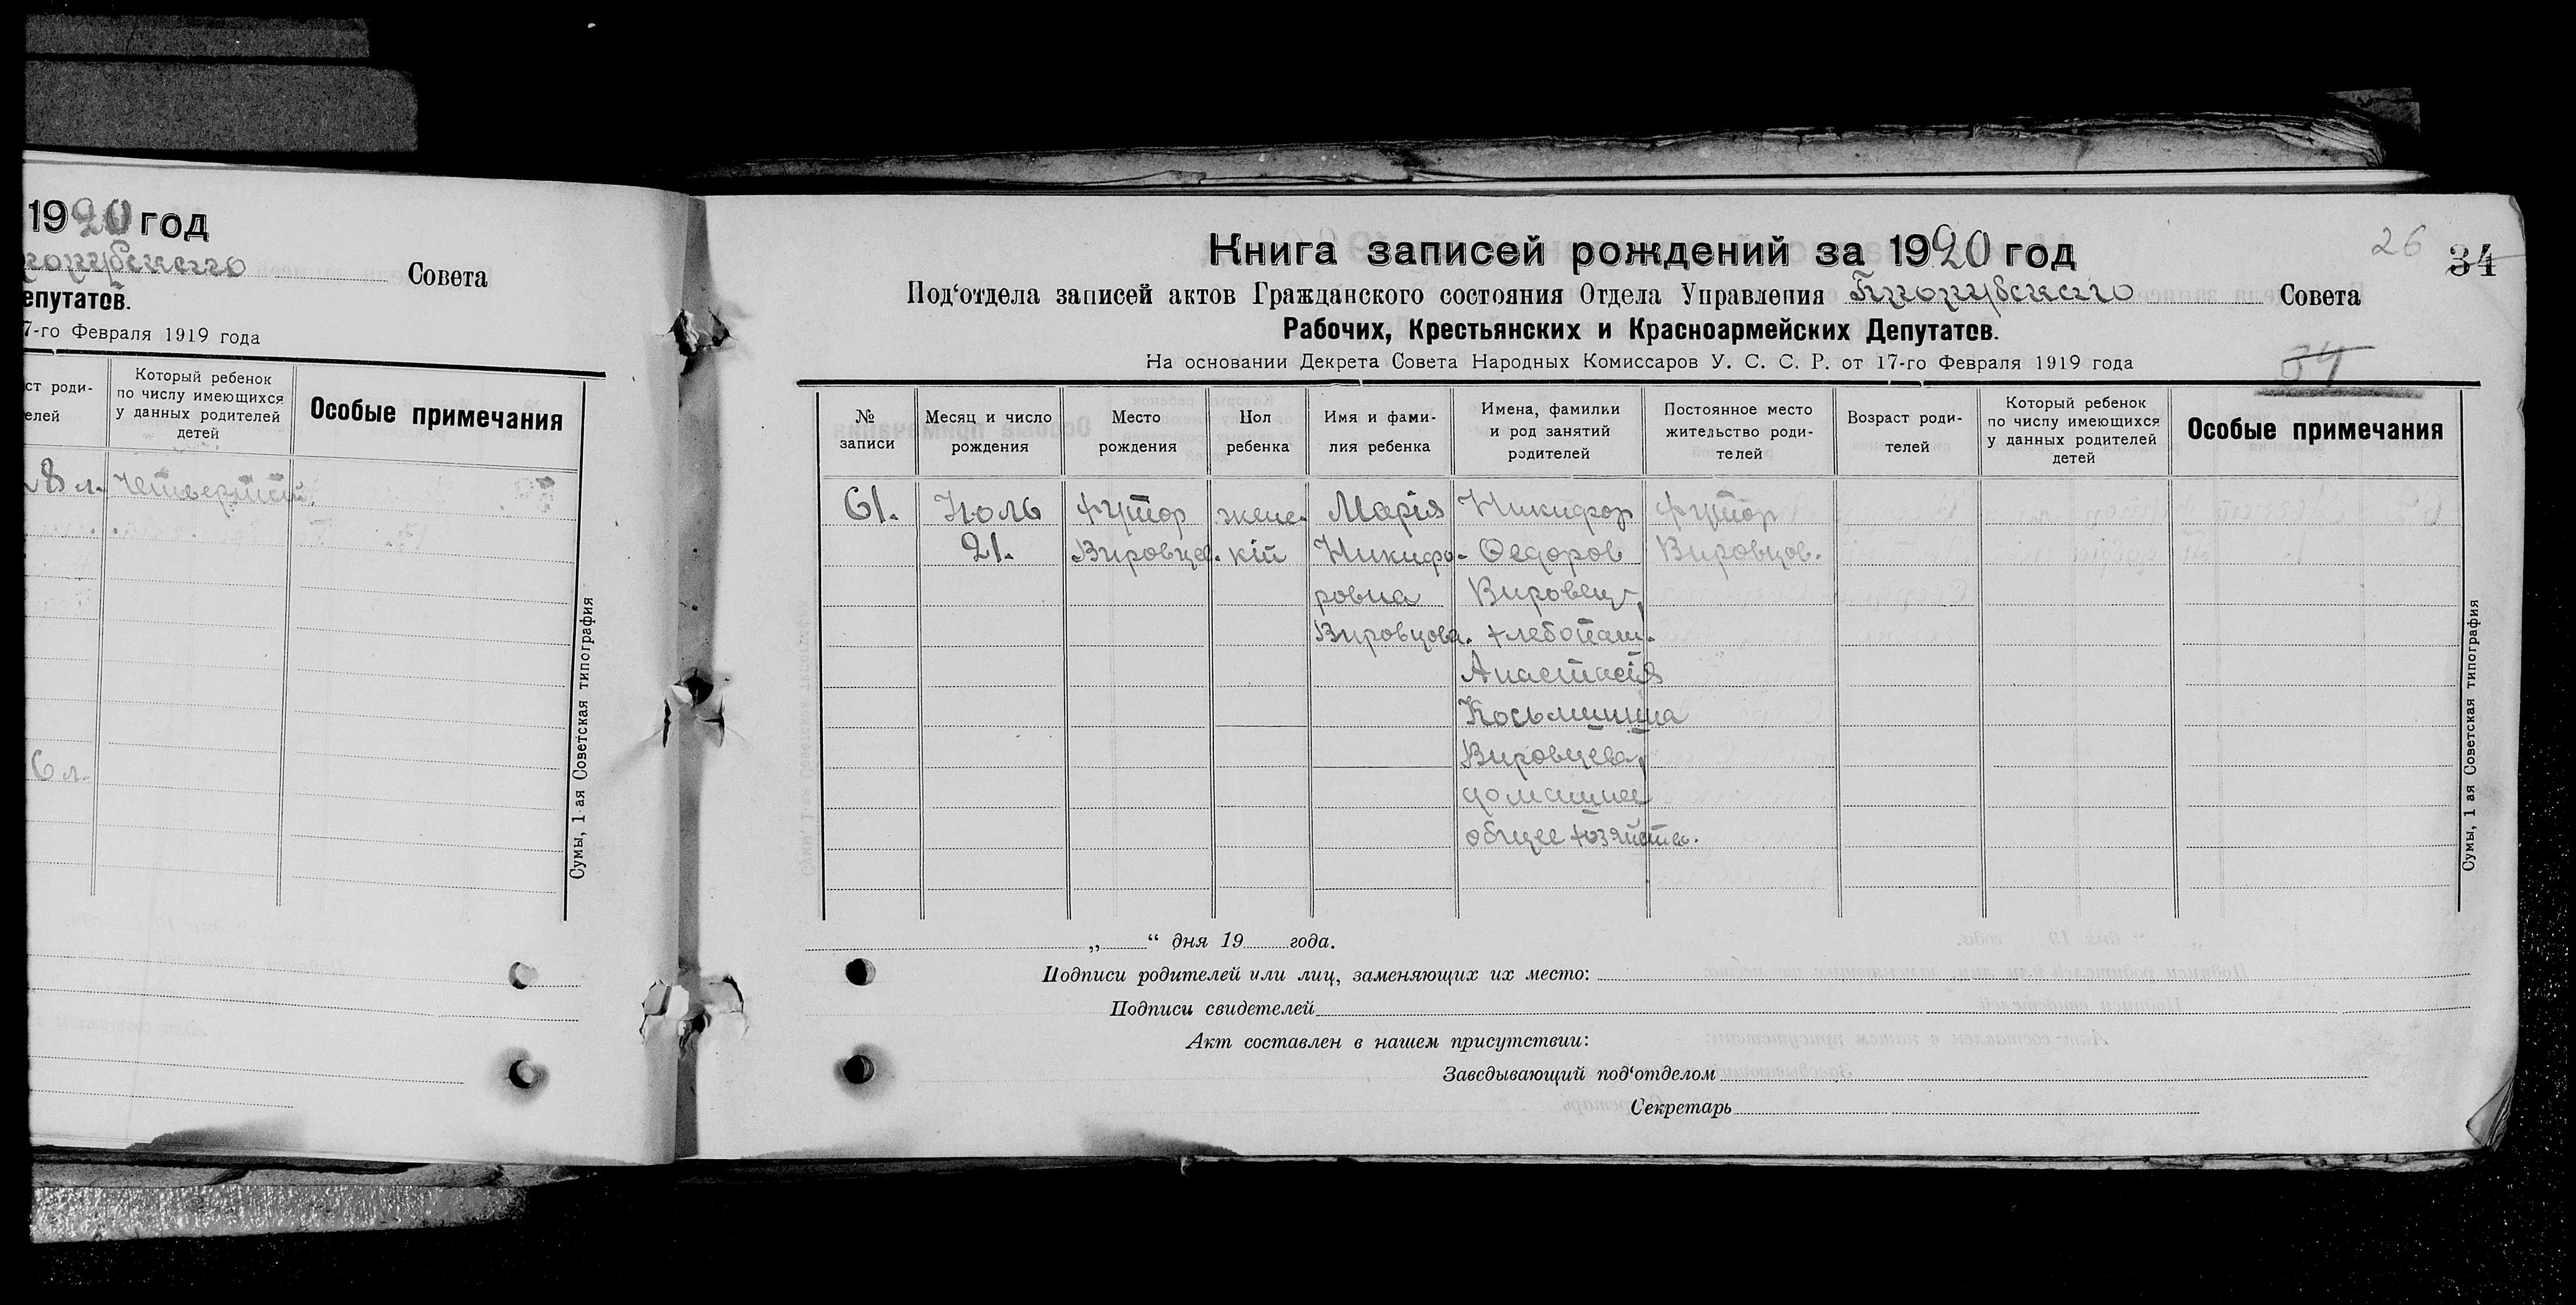 1920 год
Совета
епутатов.
7-го Февраля 1919 года
ст роди-
елей
Который ребенок
по числу имеющихся
у данных родителей
детей
Особые примечания
28 л.
Четвертый.
6 л.
Сумы, 1-ая Советская типография
26
34
Книга записей рождений за 1920 год
Под‘отдела записей актов Гражданского состояния Отдела Управления Совета
Рабочих, Крестьянских и Красноармейских Депутатов.
На основании Декрета Совета Народных Комиссаров У. С. С. Р. от 17-го Февраля 1919 года
34
№
записи
Месяц и число
рождения
Место
рождения
Пол
ребенка
Имя и фами-
лия ребенка
Имена, фамилии
и род занятий
родителей
Постоянное место
жительство роди-
телей
Возраст роди-
телей
Который ребенок
по числу имеющихся
у данных родителей
детей
Особые примечания
61.
Июль
21.
Хутор
Вировцов.
женс-
кій
Марія
Никифо-
ровна
Вировцова.
Никифор
Федоров
Вировец,
хлебопаш.
Анастасія
Косьминична
Вировцева,
домашнее
общее хозяйство.
Хутор
Вировцов.
Сумы, 1 ая Советская типография
„ “ дня 19 года.
Подписи родителей или лиц, заменяющих их место:
Подписи свидетелей
Акт составлен в нашем присутствии:
Заведывающий под‘отделом
Секретарь